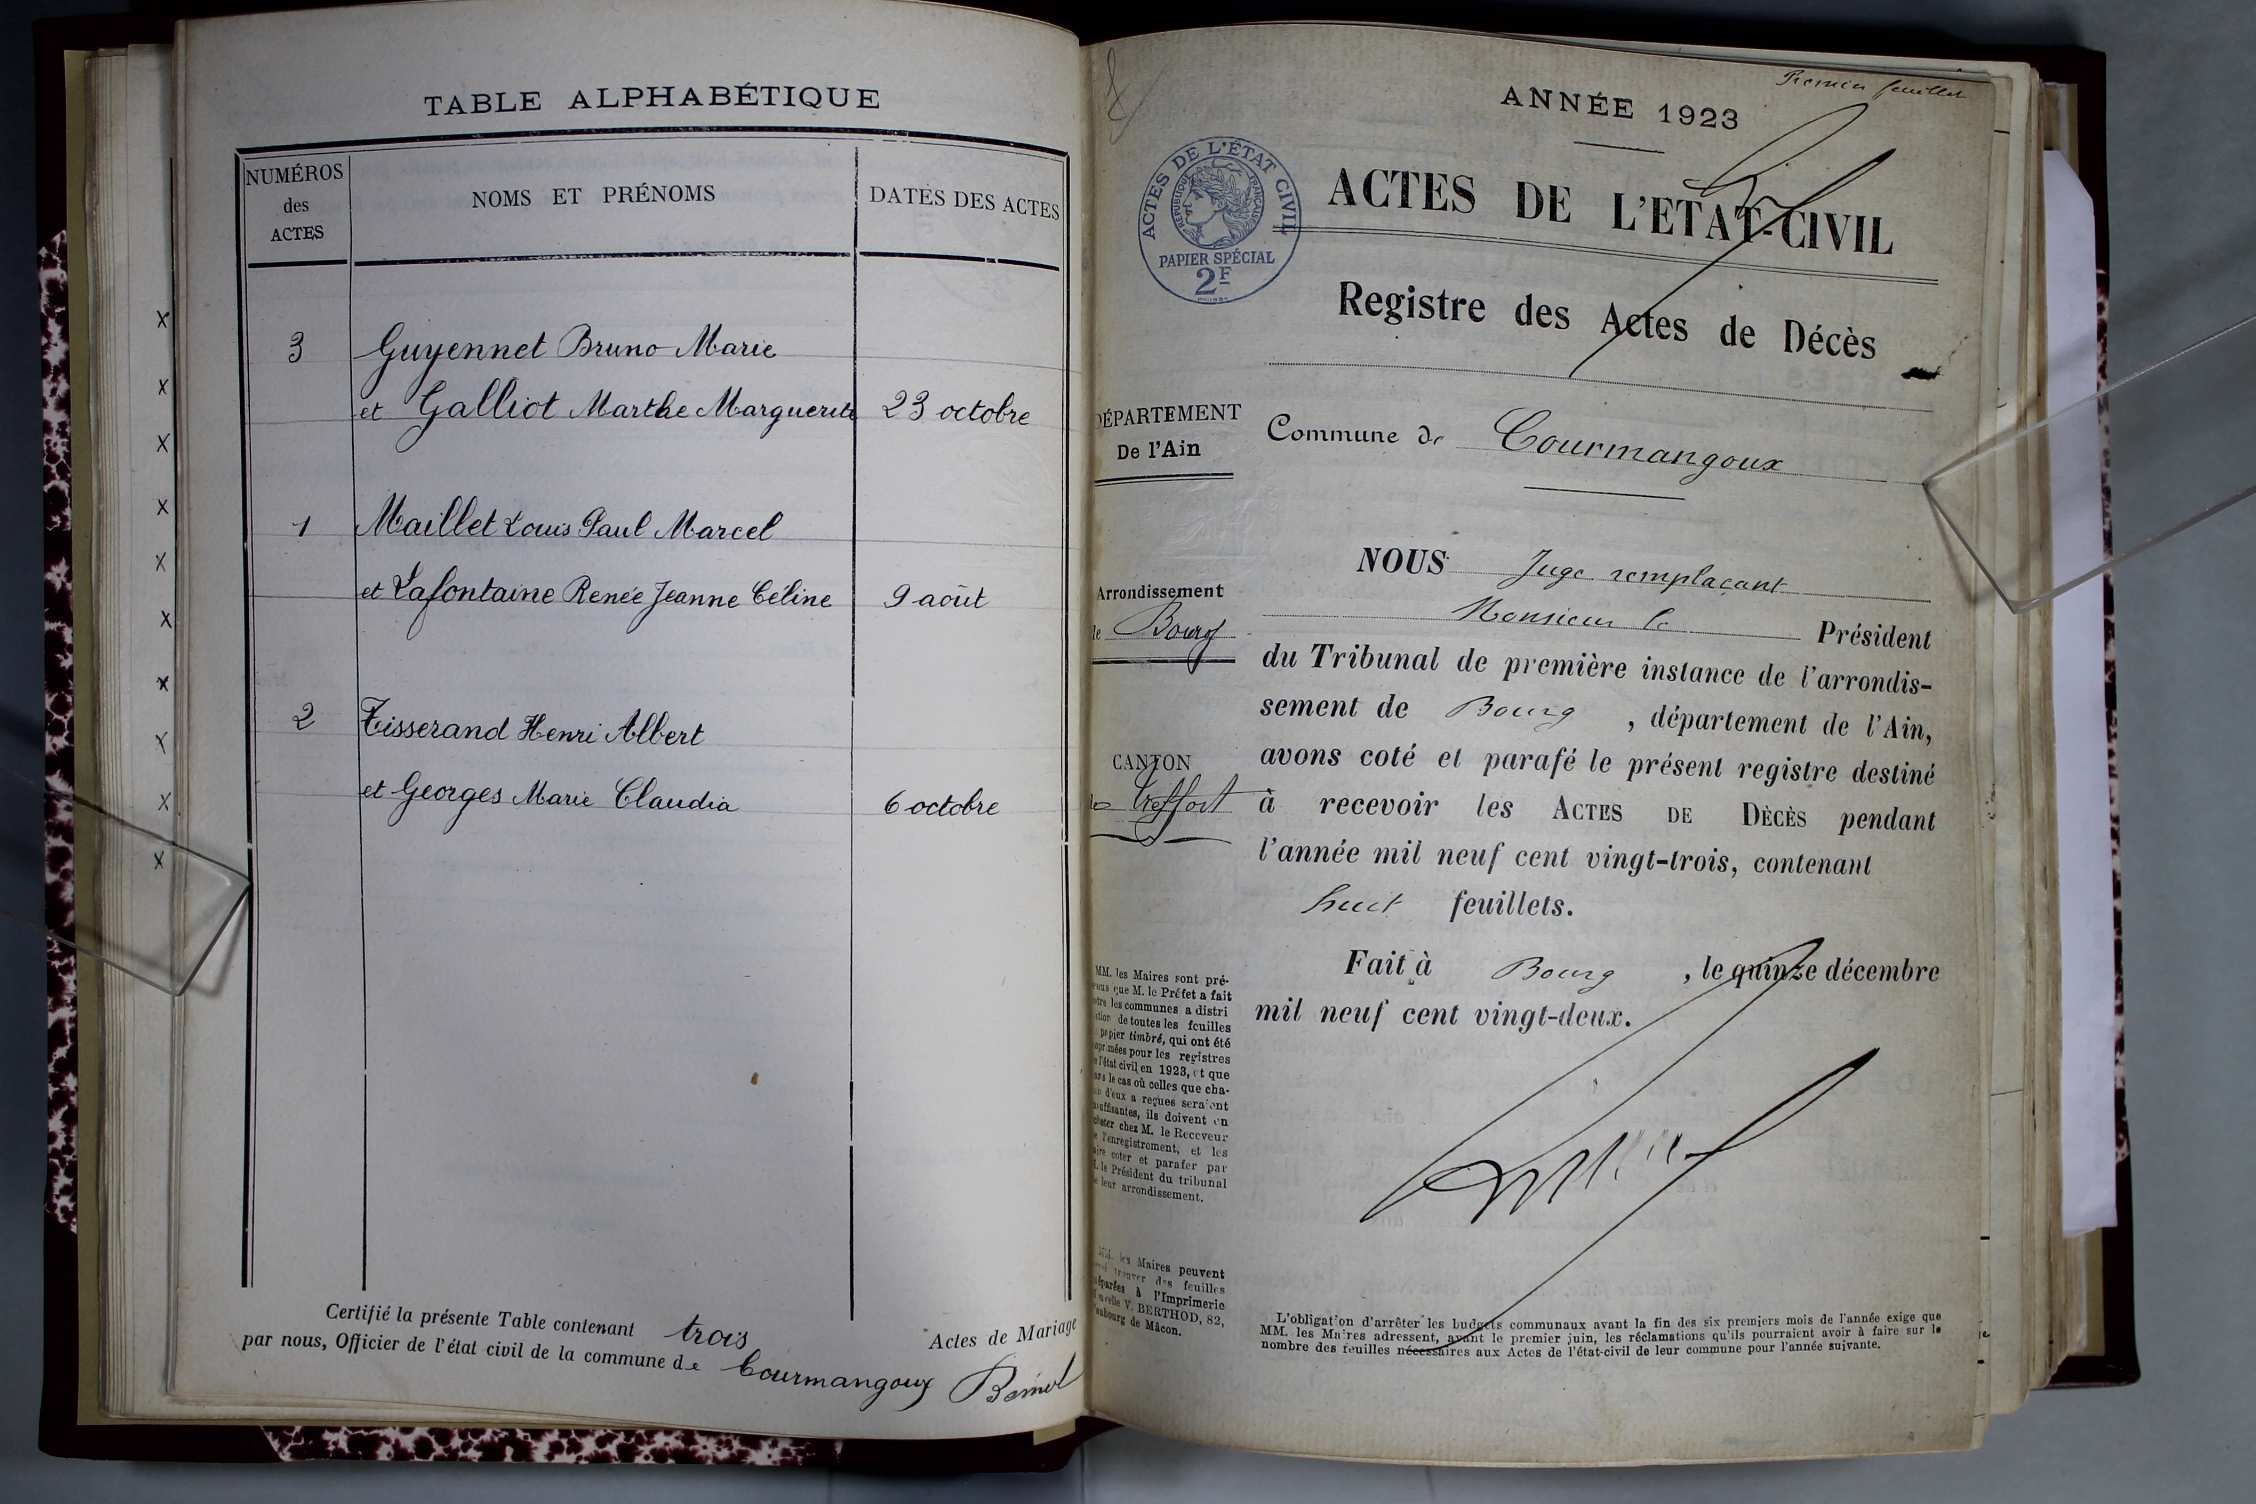 TABLE ALPHABÉTIQUE
NUMÉROS des ACTES
NOMS ET PRÉNOMS
DATES DES ACTES
3 Guyennet Bruno Marie
et Galliot Marthe Marguerite 23 octobre
1 Maillet Louis Paul Marcel
et Lafontaine Renée Jeanne Céline 9 août
2 Tisserand Henri Albert
et Georges Marie Claudia 6 octobre
Certifié la présente Table contenant trois Actes de Mariage
par nous, Officier de l'état civil de la commune de Courmangoux
Premier feuillet
ANNÉE 1923
ACTES DE L'ÉTAT CIVIL
RÉPUBLIQUE FRANÇAISE
PAPIER SPÉCIAL
2F
ACTES DE L'ETAT-CIVIL
Registre des Actes de Décès
DÉPARTEMENT
De l'Ain
Commune de Courmangoux
Arrondissement
de Bourg
CANTON
de Treffort
NOUS Juge remplaçant
Monsieur le Président
du Tribunal de première instance de l'arrondis-
sement de Bourg , département de l'Ain,
avons coté et parafé le présent registre destiné
à recevoir les ACTES DE DÈCÈS pendant
l'année mil neuf cent vingt-trois, contenant
huit feuillets.
Fait à Bourg , le quinze décembre
mil neuf cent vingt-deux.
MM. les Maires sont pré-
que M. le Préfet a fait
les communes a distri
de toutes les feuilles
papier timbré, qui ont été
mées pour les registres
l'état civil en 1923, et que
le cas où celles que cha-
d'eux a reçues seraient
insuffisantes, ils doivent en
acheter chez M. le Receveur
l'enregistrement, et les
faire coter et parafer par
M. le Président du tribunal
de leur arrondissement.
les Maires peuvent
trouver des feuilles
séparées à l'Imprimerie
V. BERTHOD, 82,
faubourg de Mâcon.
L'obligation d'arrêter les budgets communaux avant la fin des six premiers mois de l'année exige que
MM. les Maires adressent, avant le premier juin, les réclamations qu'ils pourraient avoir à faire sur le
nombre des feuilles nécessaires aux Actes de l'état-civil de leur commune pour l'année suivante.